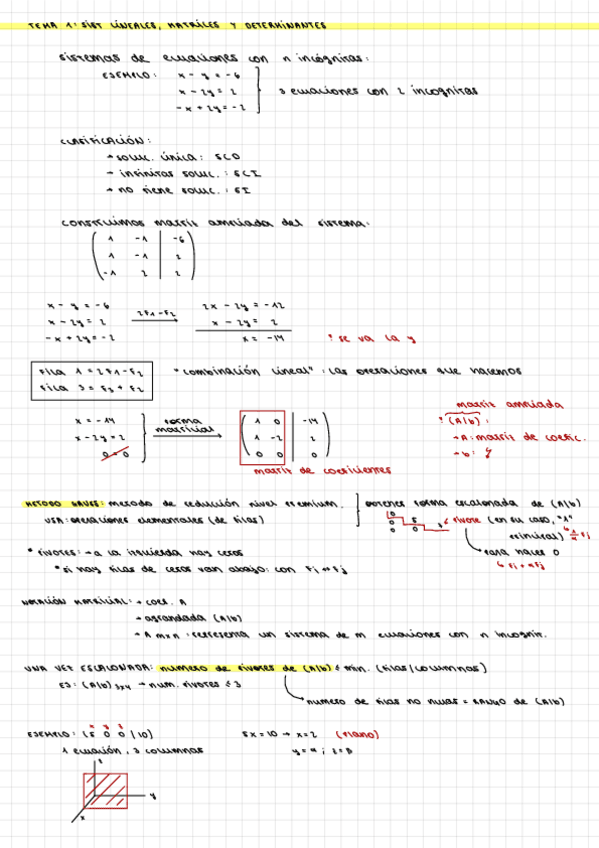 TEMA 1: SIST LINEALES, MATRICES Y DETERMINANTES
sistemas de ecuaciones con n incógnitas:
EJEMPLO: x - y = -6
x - 2y = 2
-x + 2y = -2
3 ecuaciones con 2 incognitas
CLASIFICACIÓN:
→ soluc. única: SCD
→ infinitas soluc.: SCI
→ no tiene soluc.: SI
construimos matriz ampliada del sistema:
1 -1 | -6
1 -1 | 2
-1 2 | 2
x - y = -6
x - 2y = 2
-x + 2y = -2
2F1 - F2
2x - 2y = -12
x - 2y = 2
x = -14
! se va la y
Fila 1 = 2F1 - F2
Fila 3 = F3 + F2
"combinación lineal": las operaciones que hacemos
x = -14
x - 2y = 2
0 = 0
forma matricial
1 0 | -14
1 -2 | 2
0 0 | 0
matriz de coeficientes
matriz ampliada
(A|b):
→ A: matriz de coefic.
→ b: y
METODO GAUSS: metodo de reducción nivel premium.
USA: operaciones elementales (de filas)
obtener forma escalonada de (A|b)
pivote (en su caso, "1" principal)
para hacer 0
Fi + αFj
* PIVOTES: → a la izquierda hay ceros
* si hay filas de ceros van abajo: con Fi ↔ Fj
NOTACIÓN MATRICIAL: → coef. A
→ agrandada (A|b)
→ A mxn: representa un sistema de m ecuaciones con n incognit.
UNA VEZ ESCALONADA: numero de pivotes de (A|b) ≤ min. (filas/columnas)
EJ: (A|b) 3x4 → num. pivotes ≤ 3
numero de filas no nulas = RANGO de (A|b)
x y z
EJEMPLO: (5 0 0 | 10)
5x = 10 → x = 2 (plano)
1 ecuación, 3 columnas
y = α; z = β
z
y
x